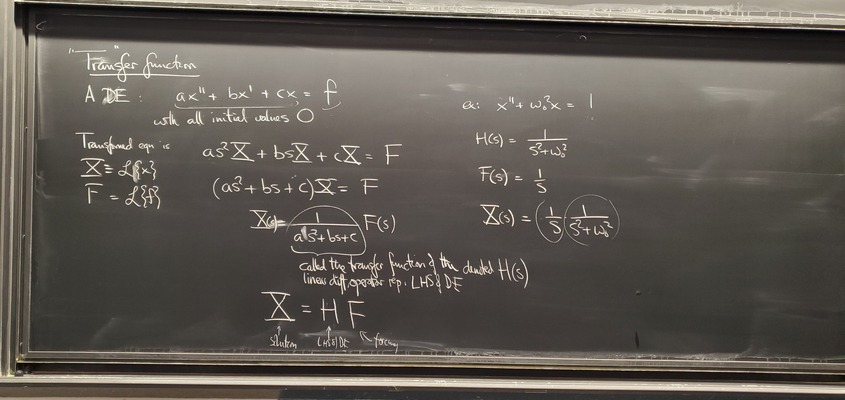 "Transfer function"
A DE: ax" + bx' + cx = f
with all initial values 0
Transformed eqn is
X = L{x}
F = L{f}
as²X + bsX + cX = F
(as² + bs + c)X = F
X(s) = 1/(as² + bs + c) F(s)
called the transfer function of the denoted H(s)
linear diff. operator rep. LHS of DE
X = H F
solution LHS of DE forcing
ex: x" + ω₀²x = 1
H(s) = 1/(s² + ω₀²)
F(s) = 1/s
X(s) = (1/s)(1/(s² + ω₀²))